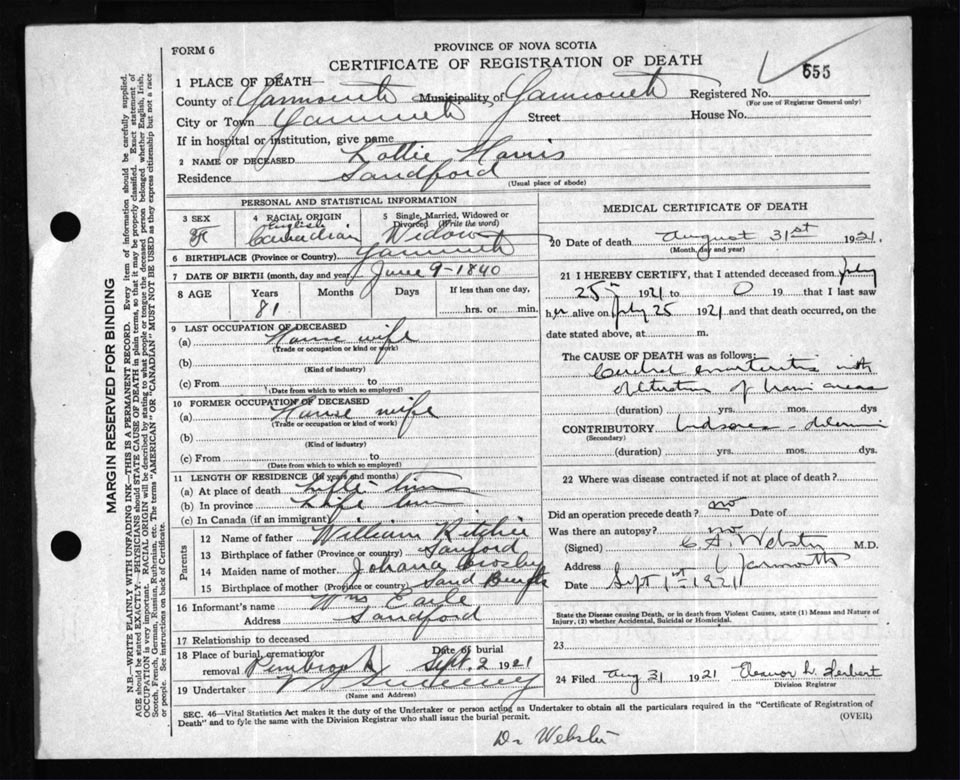 FORM 6
PROVINCE OF NOVA SCOTIA
CERTIFICATE OF REGISTRATION OF DEATH
555
1 PLACE OF DEATH—
County of Yarmouth Municipality of Yarmouth Registered No.
(For use of Registrar General only)
City or Town Yarmouth Street House No.
If in hospital or institution, give name
2 NAME OF DECEASED Lottie Harris
Residence Sandford
(Usual place of abode)
PERSONAL AND STATISTICAL INFORMATION
3 SEX
F
4 RACIAL ORIGIN
English
Canadian
5 Single, Married, Widowed or Divorced (Write the word)
Widow
6 BIRTHPLACE (Province or Country) Yarmouth
7 DATE OF BIRTH (month, day and year) June 9-1840
8 AGE Years Months Days If less than one day,
81 hrs. or min.
9 LAST OCCUPATION OF DECEASED
(a) House wife
(Trade or occupation or kind of work)
(b)
(Kind of industry)
(c) From to
(Date from which to which so employed)
10 FORMER OCCUPATION OF DECEASED
(a) House wife
(Trade or occupation or kind of work)
(b)
(Kind of industry)
(c) From to
(Date from which to which so employed)
11 LENGTH OF RESIDENCE (In years and months)
(a) At place of death Life time
(b) In province Life time
(c) In Canada (if an immigrant)
Parents
12 Name of father William Ritchie
13 Birthplace of father (Province or country) Sanford
14 Maiden name of mother Johana Crosby
15 Birthplace of mother (Province or country) Sand
16 Informant's name Wm Earle
Address Sandford
17 Relationship to deceased
18 Place of burial, cremation or removal Pembrook Date of burial Sept. 2 1921
19 Undertaker Sweeney
(Name and Address)
MEDICAL CERTIFICATE OF DEATH
20 Date of death August 31st 1921.
(Month, day and year)
21 I HEREBY CERTIFY, that I attended deceased from July
25th 1921 to 0 19 that I last saw
her alive on July 25 1921 and that death occurred, on the
date stated above, at m.
The CAUSE OF DEATH was as follows:
with
of brain areas
(duration) yrs. mos. dys
CONTRIBUTORY bedsores -
(Secondary)
(duration) yrs. mos. dys.
22 Where was disease contracted if not at place of death?
Did an operation precede death? no Date of
Was there an autopsy? no
(Signed) C A Webster M.D.
Address Yarmouth
Date Sept 1st 1921
State the Disease causing Death, or in death from Violent Causes, state (1) Means and Nature of
Injury, (2) whether Accidental, Suicidal or Homicidal.
23
24 Filed Aug 31 1921 Eleanor L Herbert
Division Registrar
SEC. 46—Vital Statistics Act makes it the duty of the Undertaker or person acting as Undertaker to obtain all the particulars required in the "Certificate of Registration of
Death" and to fyle the same with the Division Registrar who shall issue the burial permit.
(OVER)
Dr Webster
MARGIN RESERVED FOR BINDING
N.B.—WRITE PLAINLY WITH UNFADING INK—THIS IS A PERMANENT RECORD. Every item of information should be carefully supplied.
AGE should be stated EXACTLY. PHYSICIANS should STATE CAUSE OF DEATH in plain terms, so that it may be properly classified. Exact statement of
OCCUPATION is very important. RACIAL ORIGIN will be described by stating to what people or tongue the deceased person belonged whether English, Irish,
Scotch, French, German, Russian, Ruthenian, etc. The terms "AMERICAN" OR "CANADIAN" MUST NOT BE USED as they express citizenship but not a race
or people. See instructions on back of Certificate.